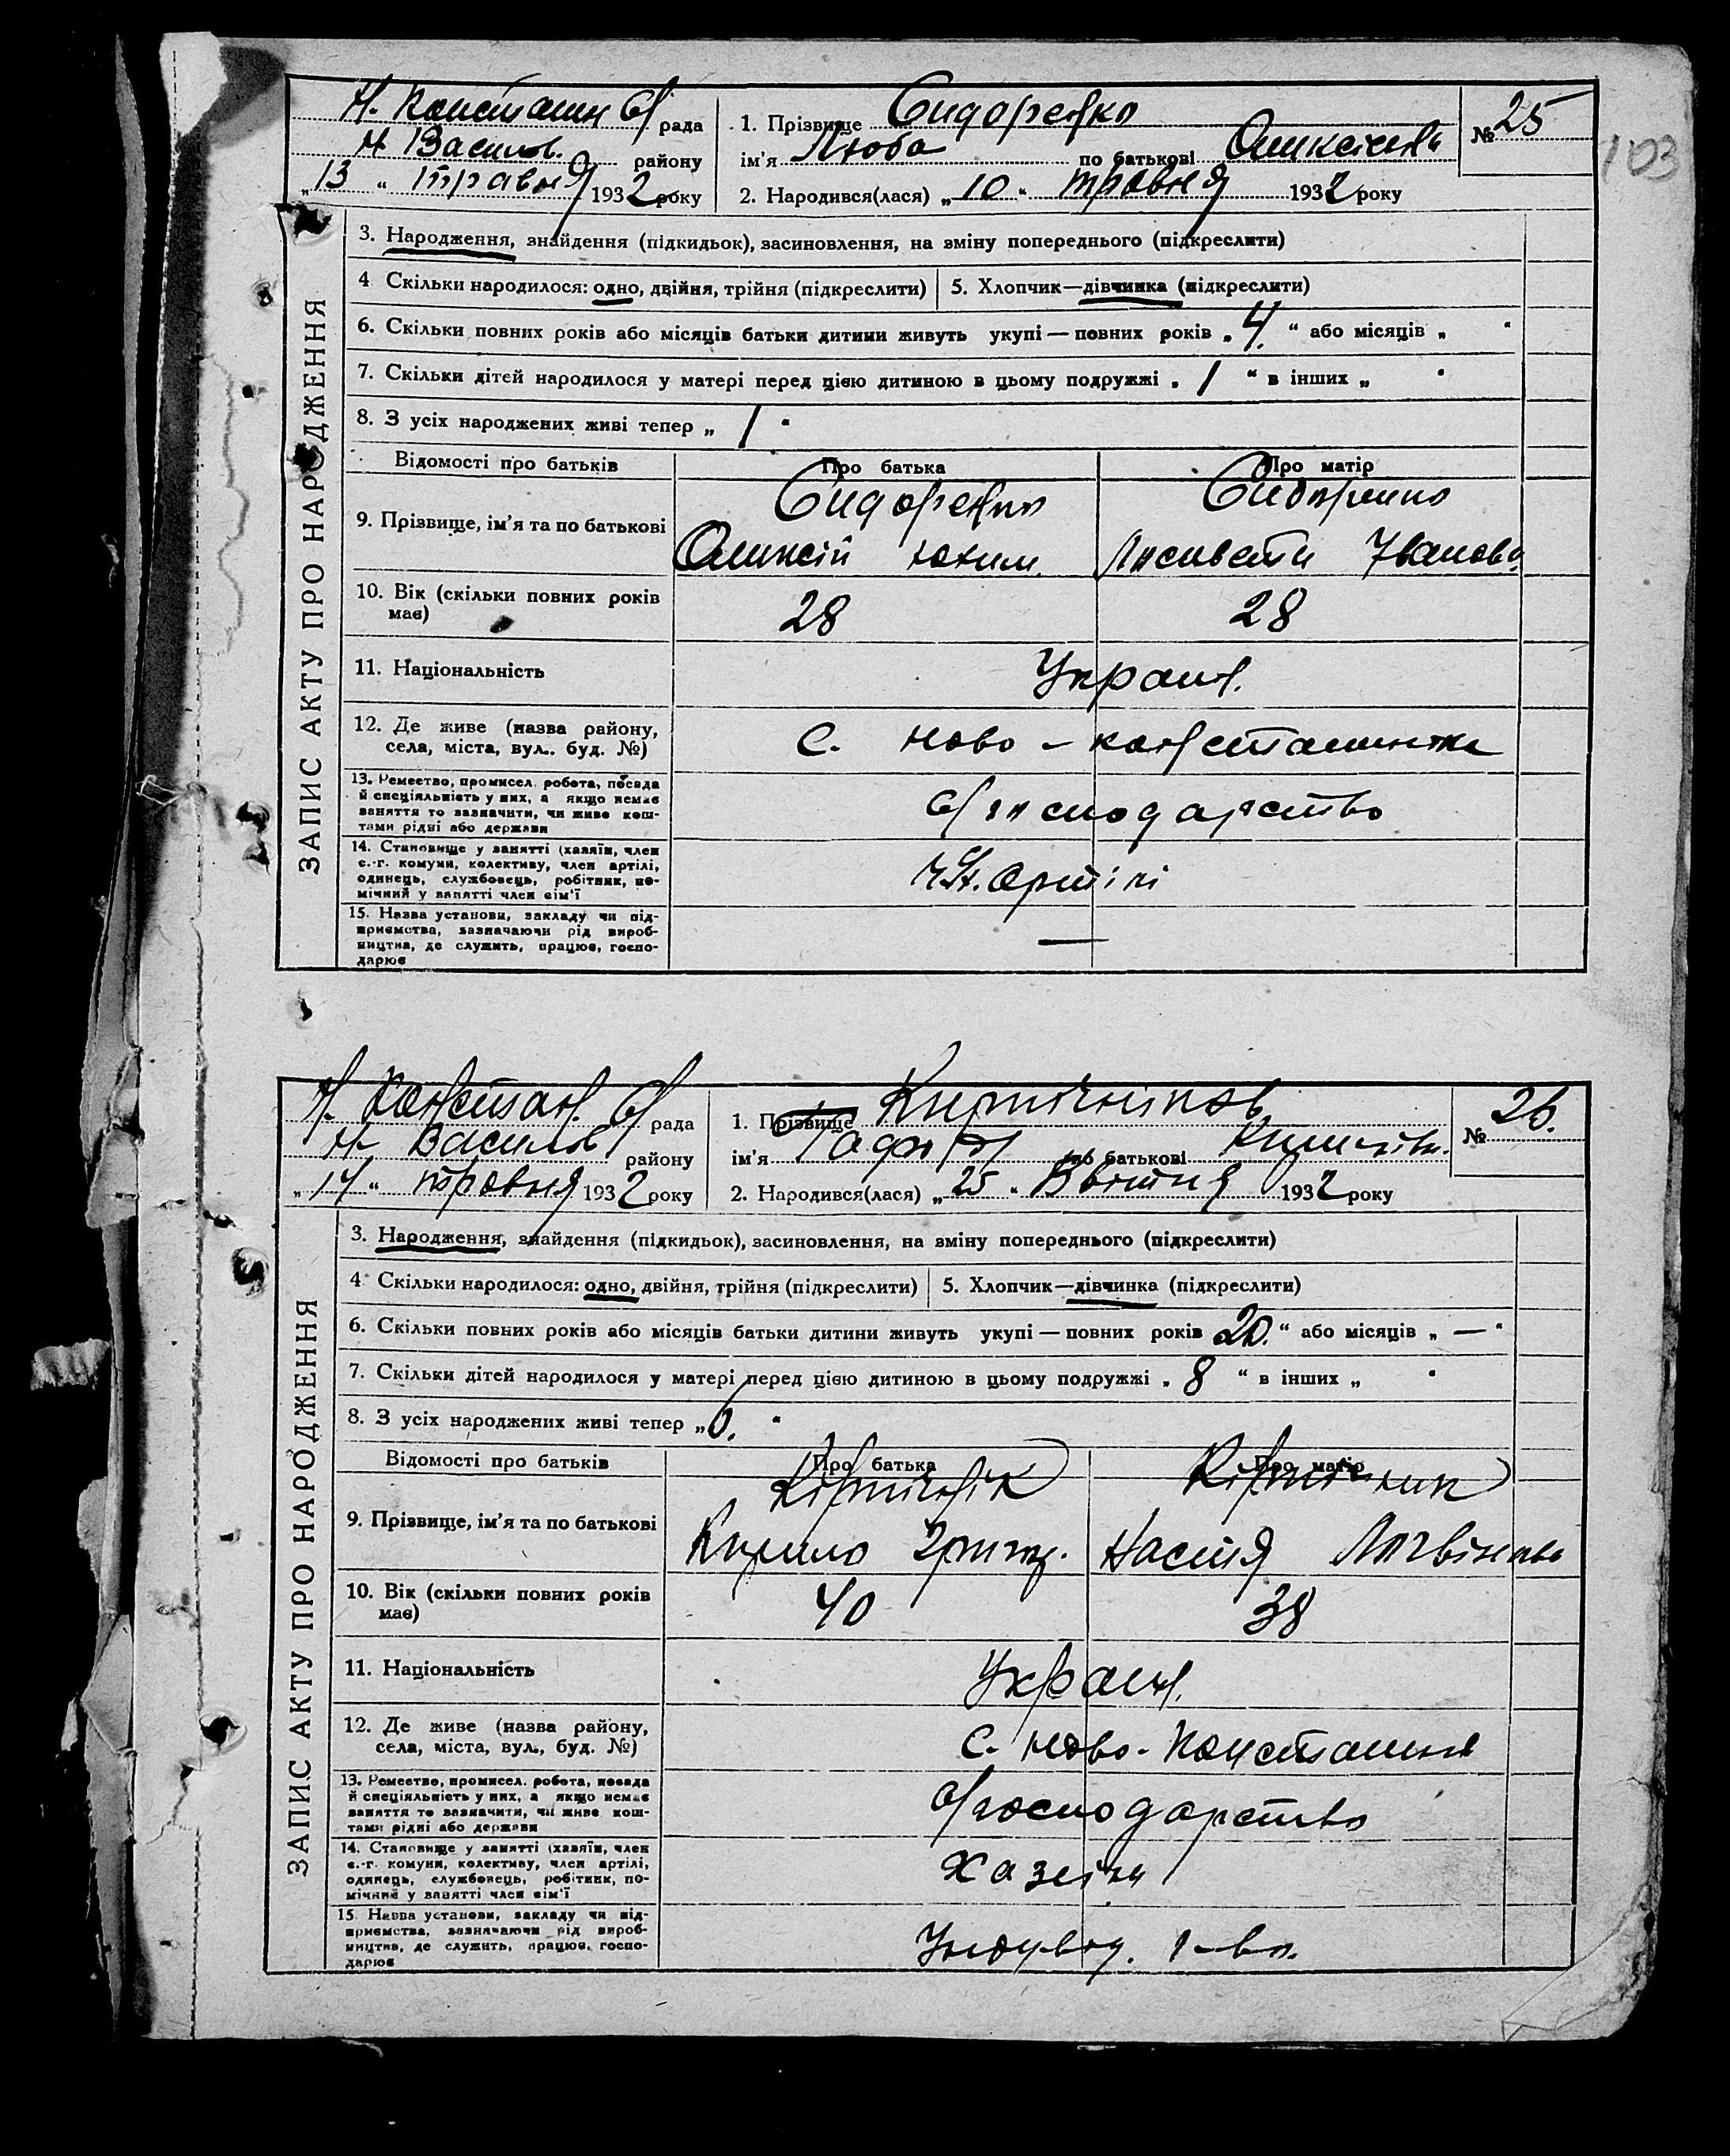 Н. Констан С/ рада
Н Васил. району
„13 “ травня 1932 року
1. Прізвище Сидоренко
ім'я Люба по батькові
2. Народився(лася) „10“ травня 1932 року
№ 25
103
ЗАПИС АКТУ ПРО НАРОДЖЕННЯ
3. Народження, знайдення (підкидьок), засиновлення, на зміну попереднього (підкреслити)
4 Скільки народилося: одно, двійня, трійня (підкреслити)
5. Хлопчик—дівчинка (підкреслити)
6. Скільки повних років або місяців батьки дитини живуть укупі — повних років „ 4. “ або місяців „ “
7. Скільки дітей народилося у матері перед цією дитиною в цьому подружжі „ 1 “ в інших „ “
8. З усіх народжених живі тепер „ 1 “
Відомості про батьків
Про батька
Про матір
9. Прізвище, ім'я та по батькові
Сидоренко
Юхим.
Сидоренко
Іванова
10. Вік (скільки повних років
має)
28
28
11. Національність
Украин.
12. Де живе (назва району,
села, міста, вул. буд. №)
с. Ново - Константинівка
13. Ремество, промисел. робота, посада
й спеціяльність у них, а якщо немає
заняття то зазначити, чи живе кош-
тами рідні або держави
с/господарство
14. Становище у занятті (хазяїн, член
с.-г. комуни, колективу, член артілі,
одинець, службовець, робітник, по-
мічний у занятті член сім'ї
артілі
15. Назва установи, закладу чи під-
приємства, зазначаючи рід вироб-
ництва, де служить, працює, госпо-
дарює
—
Н. Констан. С/ рада
Н Васил району
„14“ травня 1932 року
1. Прізвище
ім'я по батькові
2. Народився(лася) „25“ Квітня 1932 року
№ 26.
ЗАПИС АКТУ ПРО НАРОДЖЕННЯ
3. Народження, знайдення (підкидьок), засиновлення, на зміну попереднього (підкреслити)
4 Скільки народилося: одно, двійня, трійня (підкреслити)
5. Хлопчик—дівчинка (підкреслити)
6. Скільки повних років або місяців батьки дитини живуть укупі — повних років 20. “ або місяців „ — “
7. Скільки дітей народилося у матері перед цією дитиною в цьому подружжі „ 8 “ в інших „ “
8. З усіх народжених живі тепер „ 6. “
Відомості про батьків
Про батька
Про матір
9. Прізвище, ім'я та по батькові
Кірпічнік
Кирило Григор.
Кірпічник
Настя
10. Вік (скільки повних років
має)
40
38
11. Національність
Украин.
12. Де живе (назва району,
села, міста, вул., буд. №)
с. Ново-Константин
13. Ремество, промисел. робота, посада
й спеціяльність у них, а якщо немає
заняття то зазначити, чи живе кош-
тами рідні або держави
с/господарство
14. Становище у занятті (хазяїн, член
с.-г. комуни, колективу, член артілі,
одинець, службовець, робітник, по-
мічний у занятті член сім'ї
15 Назва установи, закладу чи під-
приємства, зазначаючи рід вироб-
ництва, де служить, працює, госпо-
дарює